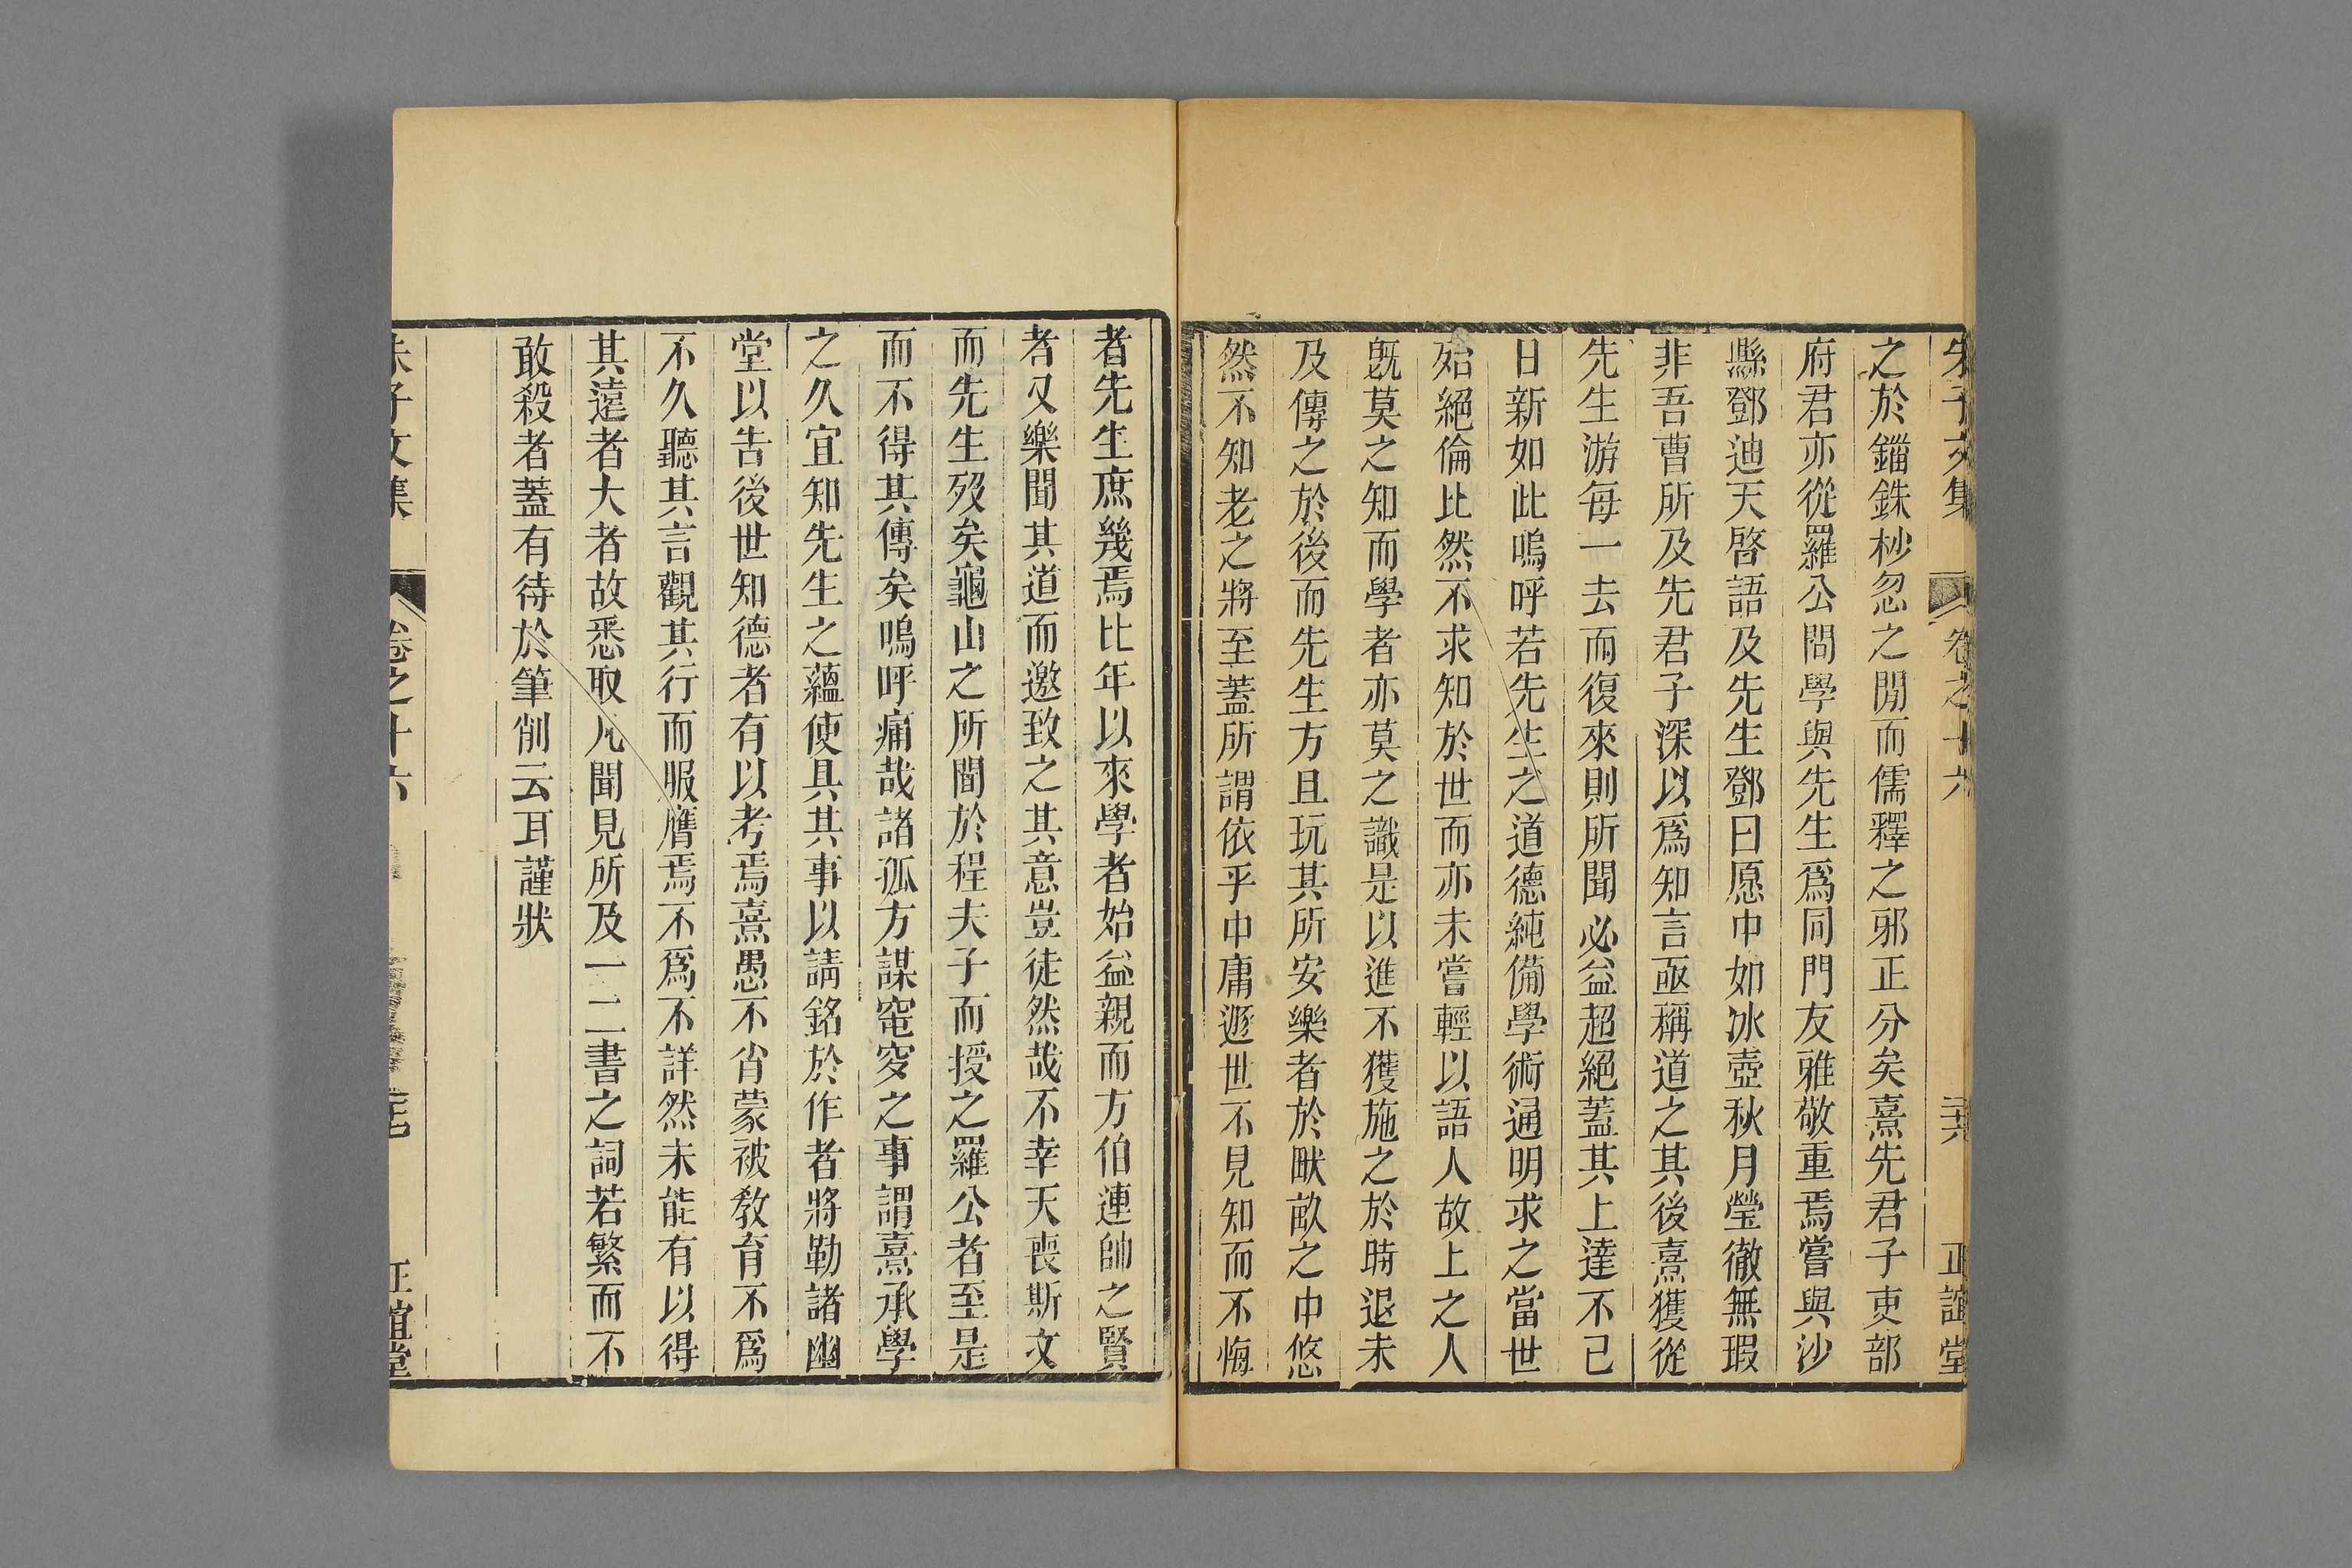 朱子文集 卷之十六 三六 正誼堂
之於錙銖杪忽之閒而儒釋之邪正分矣熹先君子吏部
府君亦從羅公問學與先生爲同門友雅敬重焉嘗與沙
縣鄧迪天啓語及先生鄧曰愿中如冰壺秋月瑩徹無瑕
非吾曹所及先君子深以爲知言亟稱道之其後熹獲從
先生游每一去而復來則所聞必益超絕蓋其上達不已
日新如此嗚呼若先生之道德純備學術通明求之當世
殆絕倫比然不求知於世而亦未嘗輕以語人故上之人
旣莫之知而學者亦莫之識是以進不獲施之於時退未
及傳之於後而先生方且玩其所安樂者於畎畝之中悠
然不知老之將至蓋所謂依乎中庸遯世不見知而不悔
者先生庶幾焉比年以來學者始益親而方伯連帥之賢
者又樂聞其道而邀致之其意豈徒然哉不幸天喪斯文
而先生歿矣龜山之所聞於程夫子而授之羅公者至是
而不得其傳矣嗚呼痛哉諸孤方謀窀穸之事謂熹承學
之久宜知先生之蘊使具其事以請銘於作者將勒諸幽
堂以告後世知德者有以考焉熹愚不肖蒙被敎育不爲
不久聽其言觀其行而服膺焉不爲不詳然未能有以得
其遠者大者故悉取凡聞見所及一二書之詞若繁而不
敢殺者蓋有待於筆削云耳謹狀
朱子文集 卷之十六 正誼堂